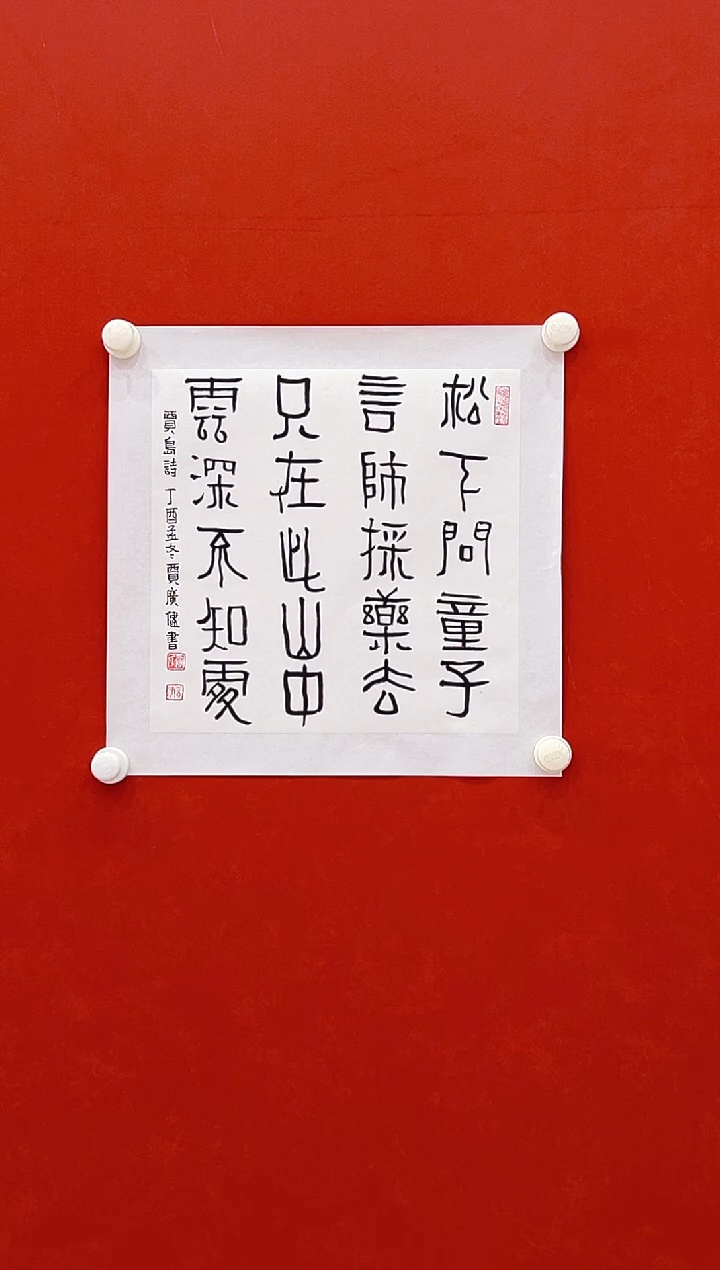 松下問童子
言師採藥去
只在此山中
雲深不知處
賈島詩 丁酉孟冬賈廣健書